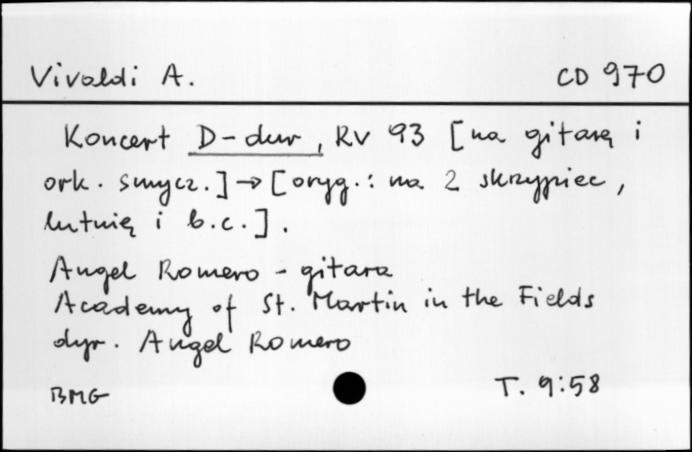 Vivaldi A. CD 970
Koncert D-dur, RV 93 [na gitarę i
ork. smycz.] → [oryg.: na 2 skrzypiec,
lutnię i b.c.].
Angel Romero - gitara
Academy of St. Martin in the Fields
dyr. Angel Romero
BMG T. 9:58